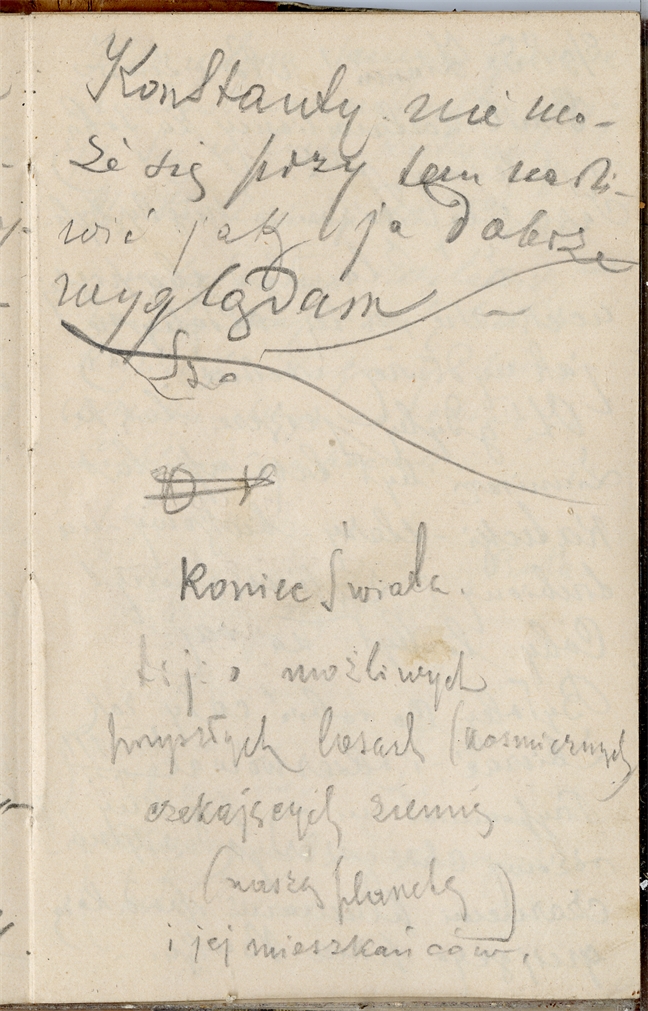 Konstanty nie mo-
że się przy tem nadzi-
wić jak ja dobrze
wyglądam —
Koniec Świata.
t.j. o możliwych
przyszłych losach (kosmicznych)
czekających ziemię
(naszą planetę)
i jej mieszkańców.